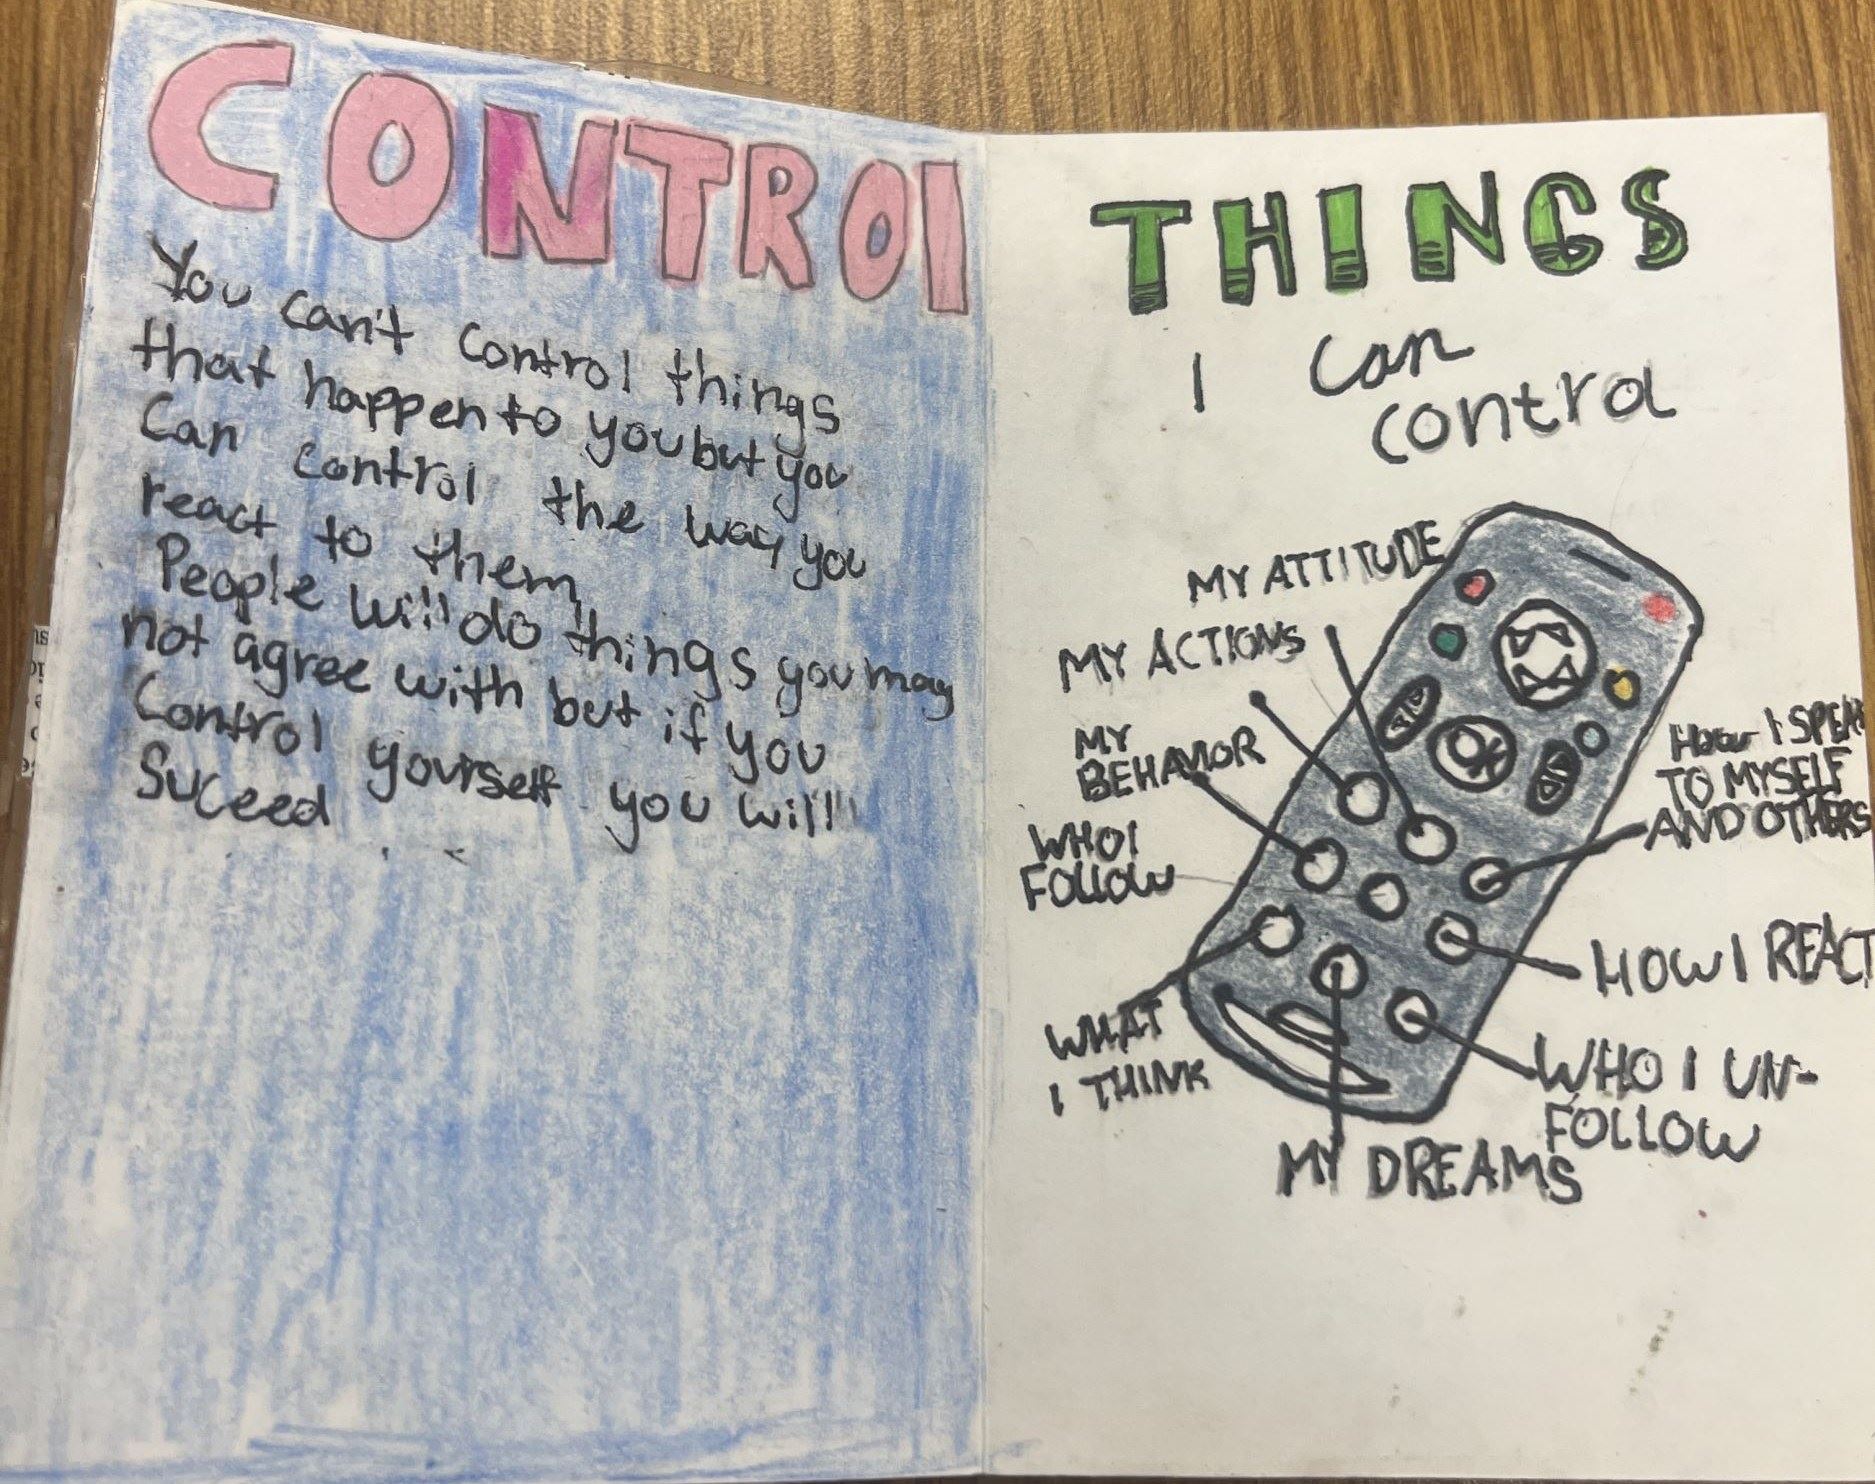 CONTROl
You can't control things
that happen to you but you
Can control the way you
react to them
People will do things you may
not agree with but if you
Control yourself you will
Suceed
THINGS
I can
control
MY ATTITUDE
MY ACTIONS
MY
BEHAVIOR
WHO I
FOLLOW
WHAT
I THINK
MY DREAMS
OK
HOW I SPEAK
TO MYSELF
AND OTHERS
HOW I REACT
WHO I UN-
FOLLOW